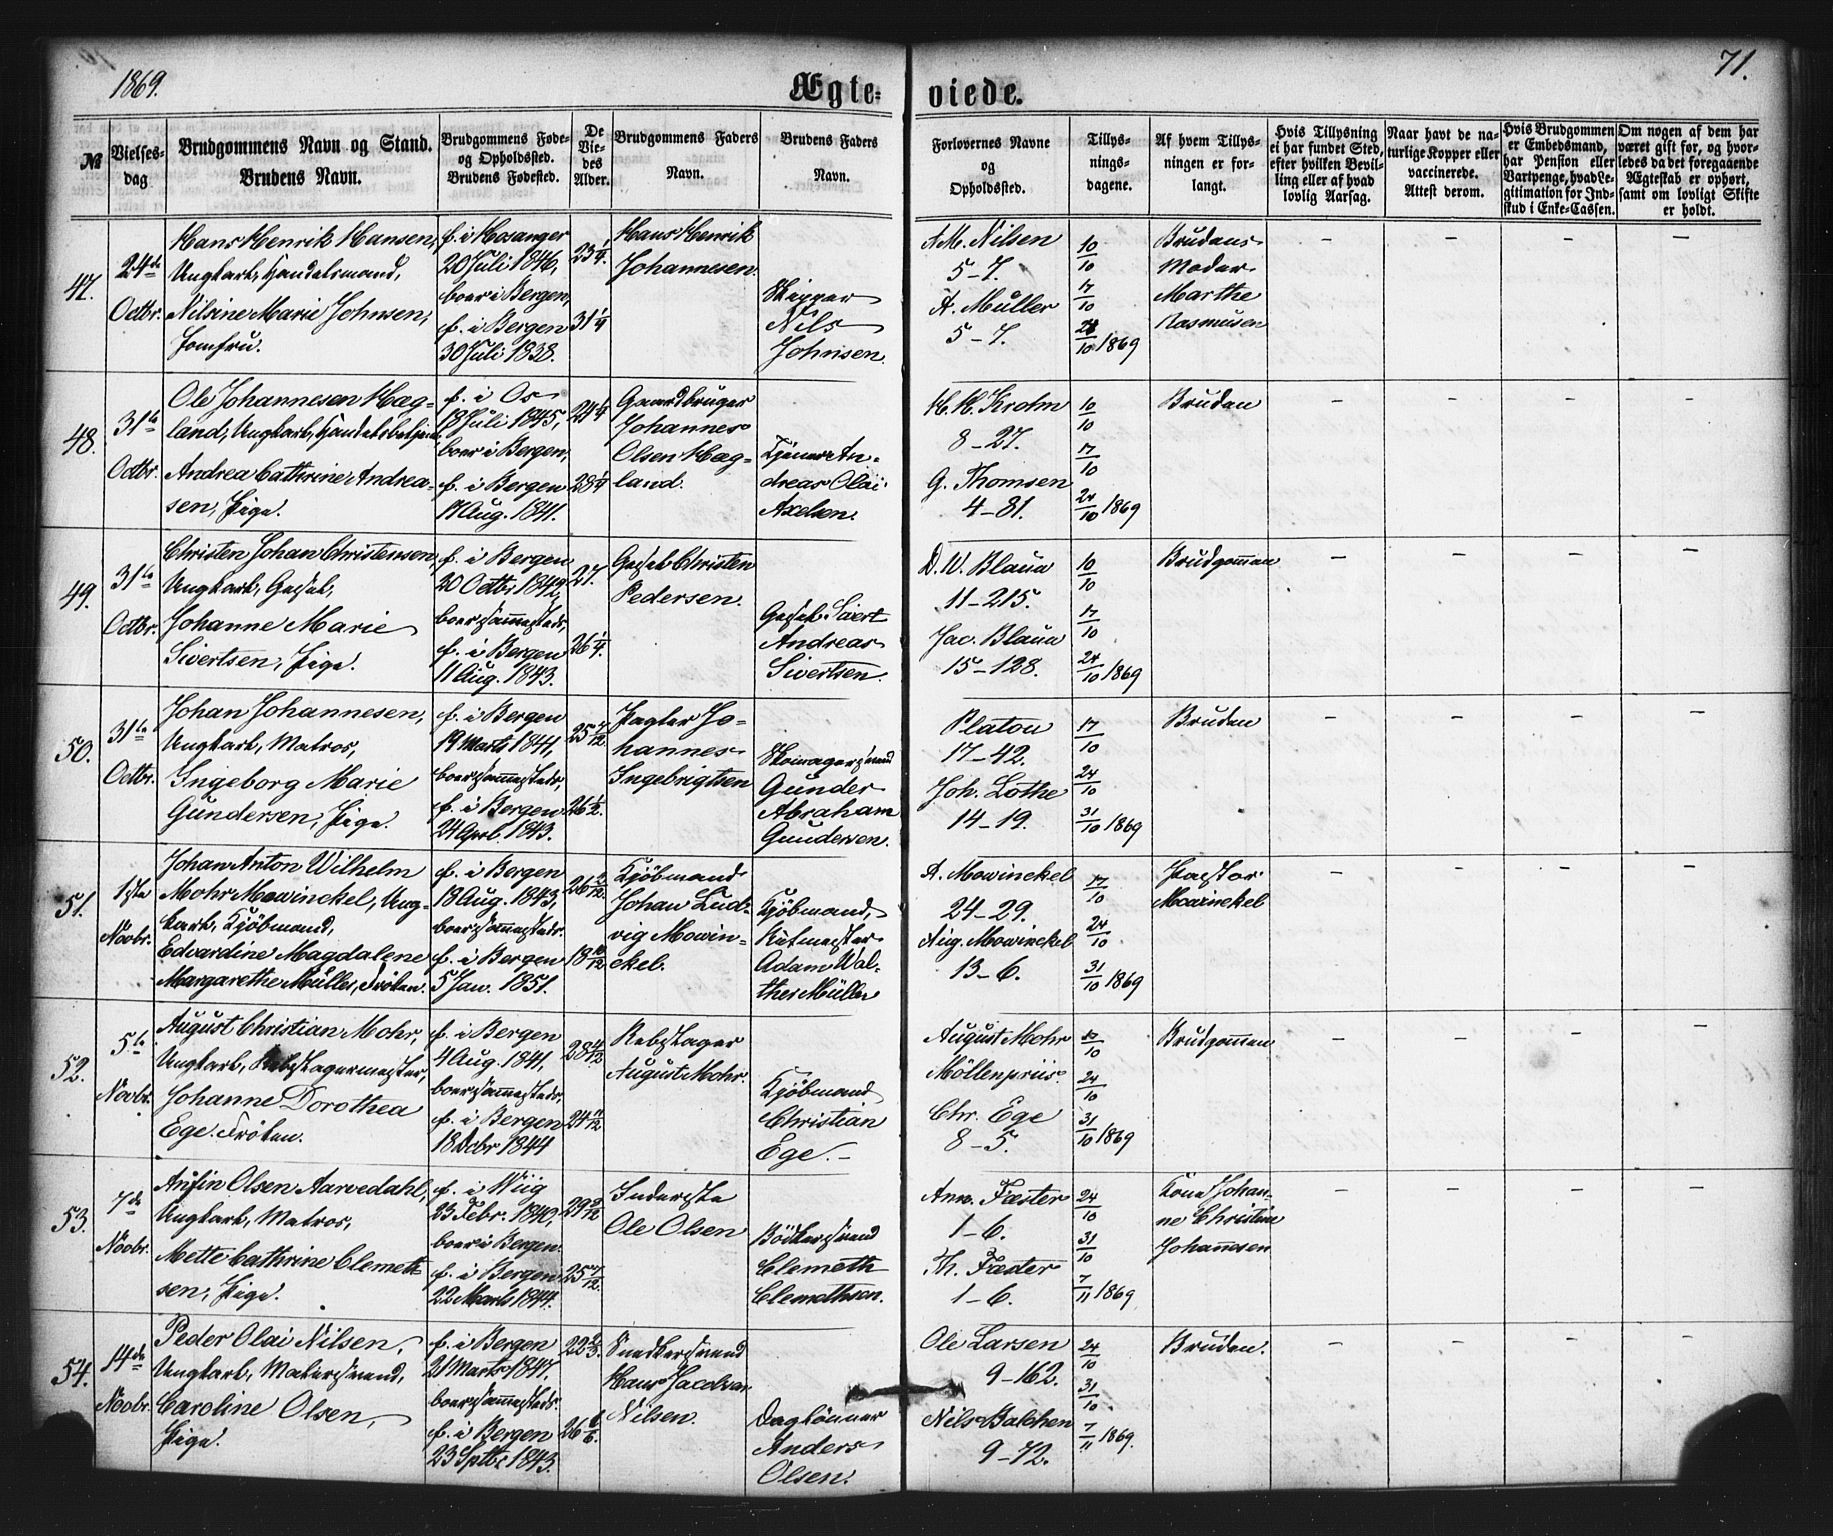 1869.
Ægteviede.
71.
№
Vielses-
dag
Brudgommens Navn og Stand.
Brudens Navn.
Brudgommens Føde-
og Opholdssted.
Brudens Fødested.
De
Vie-
des
Alder.
Brudgommens Faders
Navn.
Brudens Faders
Navn.
Forlovernes Navne
og
Opholdssted.
Tillys-
nings-
dagene.
Af hvem Tillys-
ningen er for-
langt.
Hvis Tillysning
ei har fundet Sted,
efter hvilken Bevil-
ling eller af hvad
lovlig Aarsag.
Naar havt de na-
turlige Kopper eller
vaccinerede.
Attest derom.
Hvis Brudgommen
er Embedsmand,
har Pension eller
Vartpenge, hvad Le-
gitimation for Ind-
skud i Enke-Cassen.
Om nogen af dem har
været gift før, og hvor-
ledes da det foregaaende
Ægteskab er ophørt,
samt om lovligt Skifte
er holdt.
47.
24de
Octbr.
Hans Henrik Hansen,
Ungkarl, Handelsmand,
Nilsine Marie Johnsen,
Jomfru.
f. i Hosanger
20 Juli 1846,
boer i Bergen,
f. i Bergen
30 Juli 1838.
23 1/4
31 1/4
Hans Henrik
Johannesen.
Skipper
Nils
Johnsen.
A. M. Nilsen
5-7.
A. Müller
5-7.
10/10
17/10
24/10 1869
Brudens
Moder
Marthe
Rasmusen
- - - -
48.
31te
Octbr.
Ole Johannesen Hæg-
land, Ungkarl, Handelsbetjent
Andrea Cathrine Andrea-
sen, Pige.
f. i Os
18 Juli 1845,
boer i Bergen,
f. i Bergen
17 Aug. 1841.
24 1/4
28 1/4
Gaardbruger
Johannes
Olsen Hæg-
land.
Tjener An-
dreas Olai
Axelsen.
H. H. Krohn
8-27.
G. Thomsen
4-81.
10/10
17/10
24/10 1869
Bruden
- - - -
49.
31te
Octbr.
Christen Johan Christensen,
Ungkarl, Gesel,
Johanne Marie
Sivertsen, Pige.
f. i Bergen
20 Octbr 1842,
boer sammesteds,
f. i Bergen
11 Aug. 1843.
27.
26 1/4
Gesel Christen
Pedersen.
Gesel Sivert
Andreas
Sivertsen.
D. W. Blauw
11-215.
Jac. Blauw
15-128.
10/10
17/10
24/10 1869
Brudgommen
- - - -
50.
31te
Octbr.
Johan Johannesen,
Ungkarl, Matros,
Ingeborg Marie
Gundersen, Pige.
f. i Bergen
19 Marts 1844,
boer sammesteds,
f. i Bergen
24 April 1843.
25 7/12.
26 1/2.
Fagter Jo-
hannes
Ingebrigtsen
Skomagersvend
Gunder
Abraham
Gundersen.
Platou
17-42.
Joh. Lothe
14-19.
17/10
24/10
31/10 1869
Bruden
- - - -
51.
1ste
Novbr.
Johan Anton Wilhelm
Mohr Mowinckel, Ung-
karl, Kjöbmand,
Edvardine Magdalene
Margarethe Müller, Frøken.
f. i Bergen
18 Aug. 1843,
boer sammesteds.
f. i Bergen
5 Jan. 1851.
26 2/12.
18 10/12
Kjöbmand
Johan Lud-
vig Mowin-
ckel.
Kjöbmand,
Ritmester
Adam Wal-
ther Müller
A. Mowinckel
24-29.
Aug. Mowinckel
13-6.
17/10
24/10
31/10 1869
Pastor
Mowinckel
- - - -
52.
5te
Novbr.
August Christian Mohr,
Ungkarl, Rebslagermester,
Johanne Dorothea
Ege. Frøken.
f. i Bergen
4 Aug. 1841,
boer sammesteds,
f. i Bergen
18 Decbr 1844
28 4/12.
24 11/12.
Rebslager
August Mohr.
Kjöbmand
Christian
Ege.
August Mohr
Möllenpriis.
Chr. Ege
8-5.
17/10
24/10
31/10 1869
Brudgommen
- - - -
53.
7de
Novbr.
Anfin Olsen Aarvedahl,
Ungkarl, Matros,
Mette Cathrine Clemeth-
sen, Pige.
f. i Wiig
23 Febr. 1840,
boer i Bergen.
f. i Bergen
22 Marts 1844.
29 9/12
25 7/12.
Inderste
Ole Olsen
Bödkersvend
Clemeth
Clemethsen.
Ann. Fæster
1-6.
Th. Fæster
1-6.
24/10
31/10
7/11 1869
Kone Johan-
ne Christine
Johannesen
- - - -
54.
14de
Novbr.
Peder Olai Nilsen,
Ungkarl, Malersvend,
Caroline Olsen,
Pige.
f. i Bergen
21 Marts 1847.
boer sammesteds.
f. i Bergen
23 Septbr 1843.
22 2/3.
26 1/6.
Snedkersvend
Hans Jacobsen
Nilsen.
Daglönner
Anders
Olsen.
Ole Larsen
9-162.
Nils Balchen
9-72.
24/10
31/10.
7/11 1869.
Bruden.
- - - -